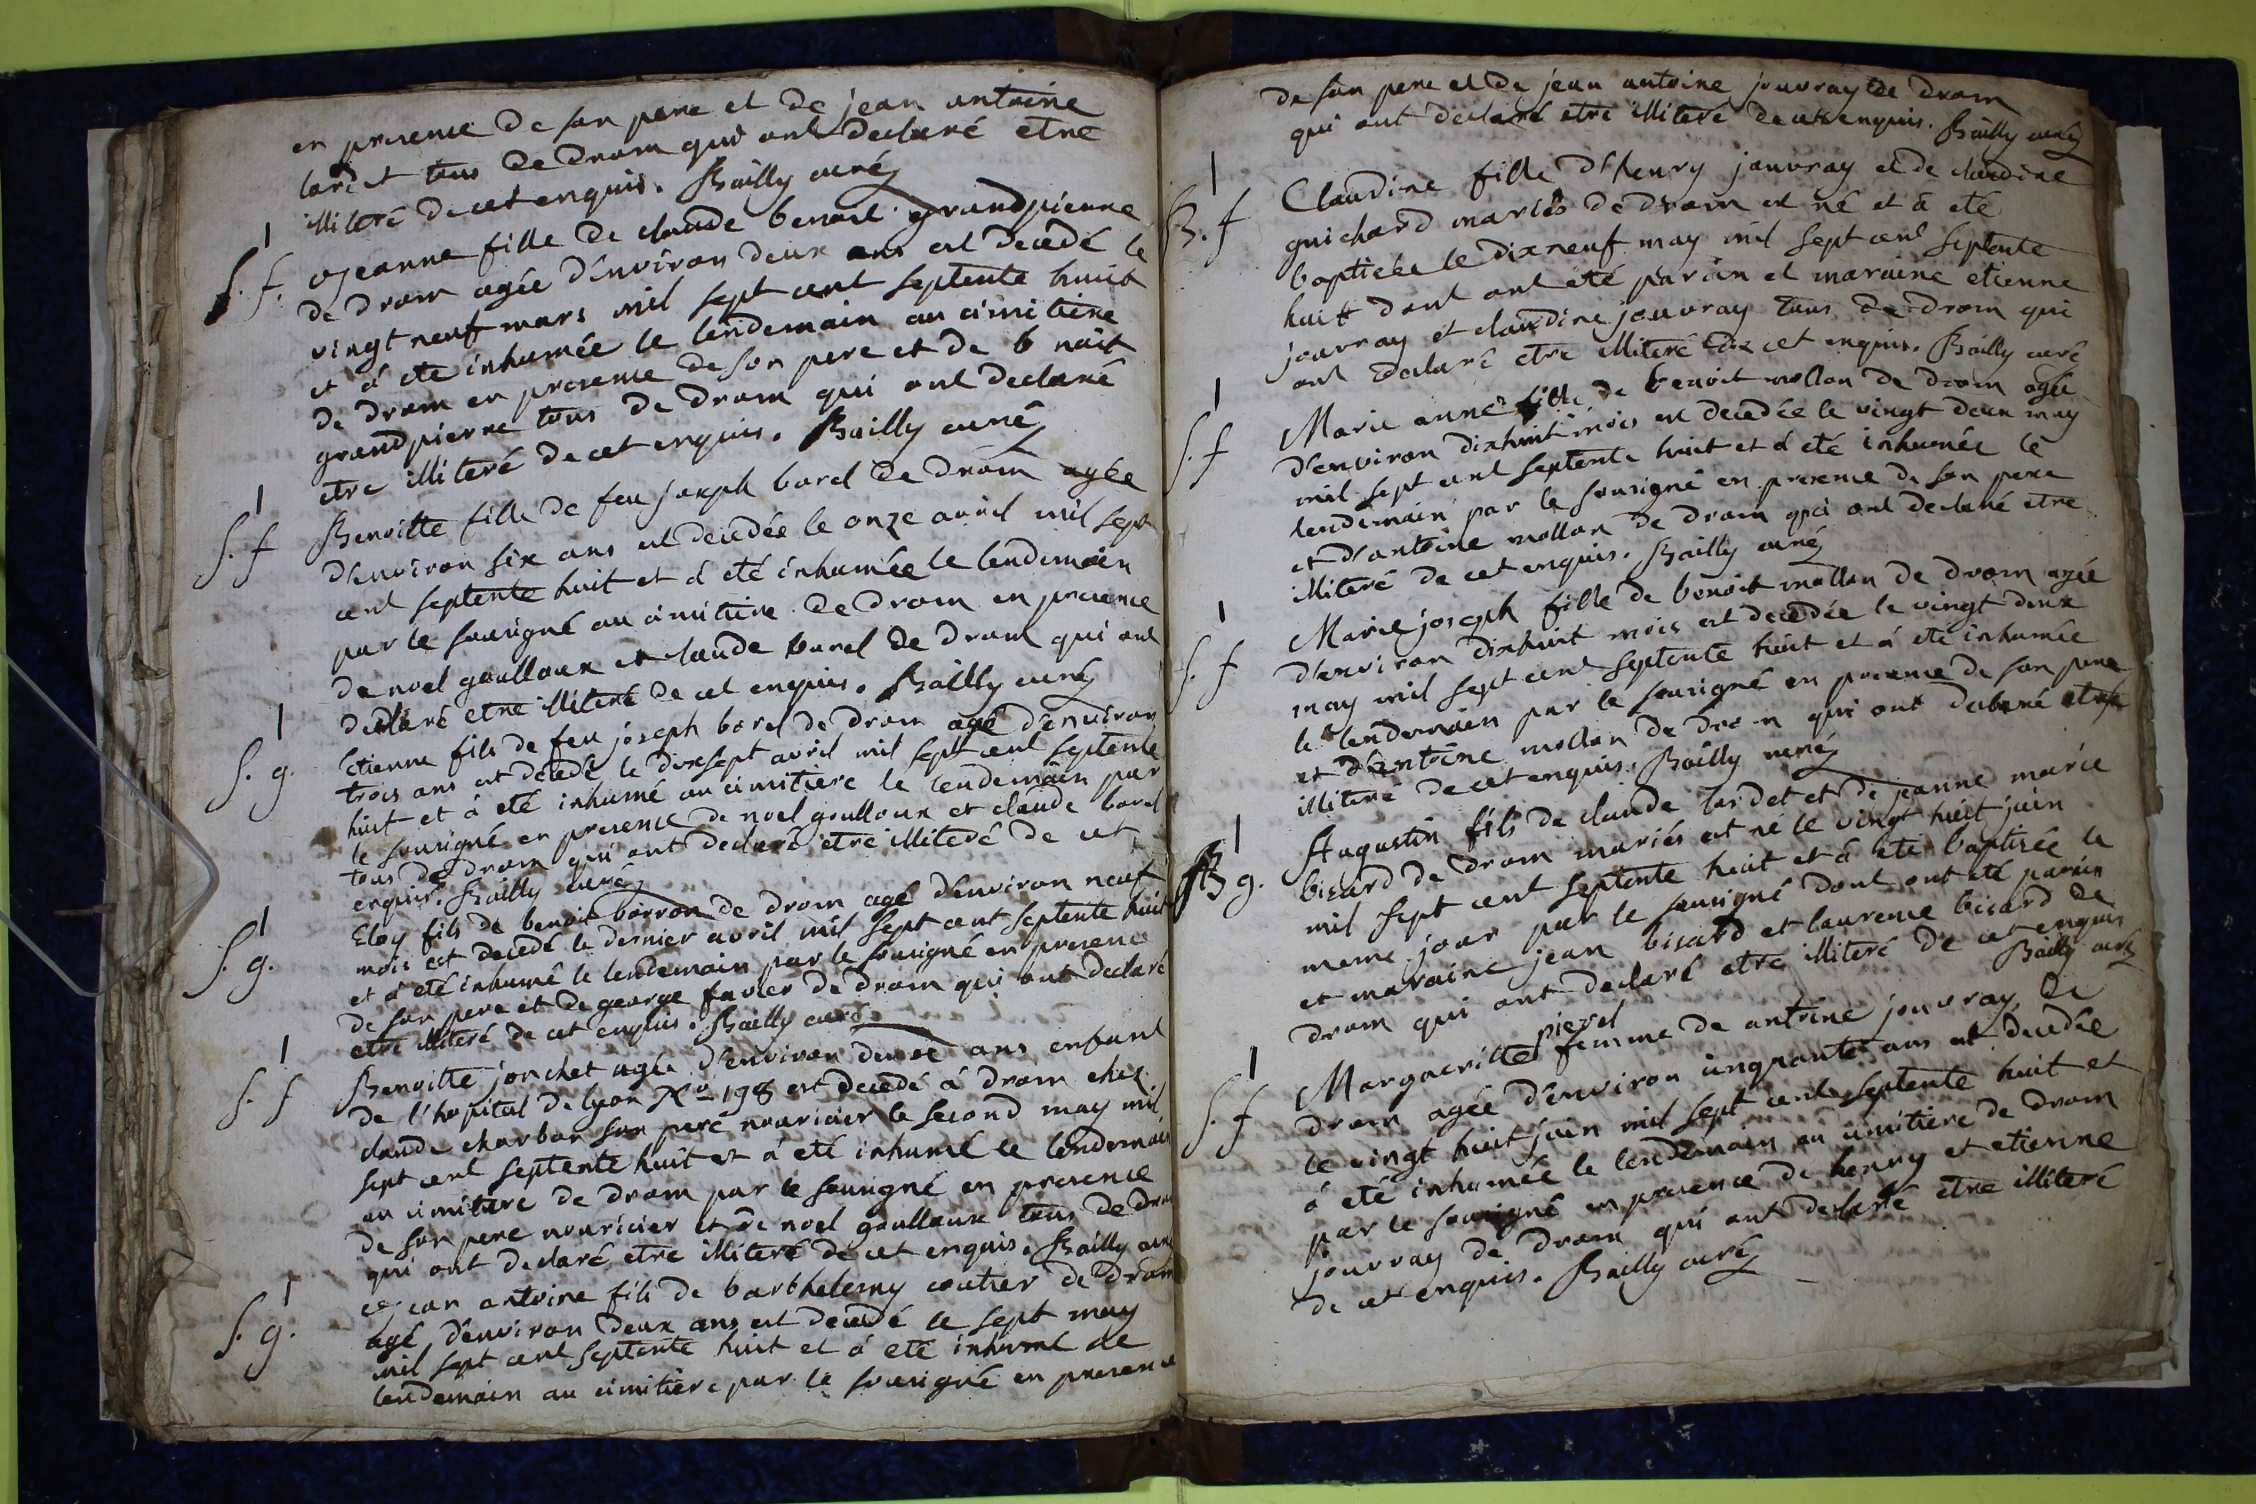 en presence de son pere et de jean antoine
lardet tous de drom qui ont declaré etre
illiteré de cet enquis. Bailly curé
1
S. f. Jeanne fille de claude benoit grandpierre
de drom agée d'environ deux ans est decedé le
vingt neuf mars mil sept cent septente huit
et á eté inhumée le lendemain au cimitiere
de drom en presence de son pere et de b noit
grandpierre tous de drom qui ont declaré
etre illiteré de cet enquis. Bailly curé
1
S. f Benoitte fille de feu joseph borel de drom agée
d'environ six ans est decedée le onze avril mil sept
cent septente huit et á eté inhumée le lendemain
par le sousigné au cimitiere de drom en presence
de noel goulloux et claude borel de drom qui ont
declaré etre illiteré de cet enquis. Bailly curé
1
S. g. Etienne fils de feu joseph borel de drom agé d'environ
trois ans est decedé le dixsept avril mil sept cent septente
huit et á eté inhumé au cimitiere le lendemain par
le sousigné en presence de noel goulloux et claude borel
tous de drom qui ont declaré etre illiteré de cet
enquis. Bailly curé
1
S. g. Eloy fils de benoit borron de drom agé d'environ neuf
mois est decedé le dernier avril mil sept cent septente huit
et á eté inhumé le lendemain par le sousigné en presence
de son pere et de george favier de drom qui ont declaré
etre illiteré de cet enquis. Bailly curé
1
S. f Benoitte jonchet agée d'environ deux ans enfant
de l'hopital de lyon No 198 est decedé á drom chez
claude charbon son pere nouricier le second may mil
sept cent septente huit et á eté inhumé le lendemain
au cimitiere de drom par le sousigné en presence
de son pere nouricier et de noel goulloux tous de drom
qui ont declaré etre illiteré de cet enquis. Bailly curé
1
S. g. jean antoine fils de barthelemy coutier de drom
agé d'environ deux ans est decedé le sept may
mil sept cent septente huit et á eté inhumé le
lendemain au cimitiere par le sousigné en presence
de son pere et de jean antoine jouvray de drom
qui ont declaré etre illiteré de cet enquis. Bailly curé
1
B. f Claudine fille d'henry jouvray et de claudine
guichard mariés de drom est né et á eté
baptisée le dixneuf may mil sept cent septente
huit dont ont eté parain et maraine etienne
jouvray et claudine jouvray tous de drom qui
ont declaré etre illiteré de cet enquis. Bailly curé
1
S. f Marie anne fille de benoit mollon de drom agée
d'environ dixhuit mois est decedée le vingt deux may
mil sept cent septente huit et á eté inhumée le
lendemain par le sousigné en presence de son pere
et d'antoine mollon de drom qui ont declaré etre
illiteré de cet enquis. Bailly curé
1
S. f Marie joseph fille de benoit mollon de drom agée
d'environ dixhuit mois est decedée le vingt deux
may mil sept cent septente huit et á eté inhumée
le lendemain par le sousigné en presence de son pere
et d'antoine mollon de drom qui ont declaré etre
illiteré de cet enquis. Bailly curé
1
B g. Augustin fils de claude lardet et de jeanne marie
bisard de drom mariés est né le vingt huit juin
mil sept cent septente huit et á eté baptisée le
meme jour par le sousigné dont ont eté parain
et maraine jean bisard et laurence bisard de
drom qui ont declaré etre illiteré de cet enquis
Bailly curé
1
pierel
S. f Margueritte femme de antoine jouvray de
drom agée d'environ cinquante ans est decedée
le vingt huit juin mil sept cent septente huit et
á eté inhumée le lendemain au cimitiere de drom
par le sousigné en presence de henry et etienne
jouvray de drom qui ont declaré etre illiteré
de cet enquis. Bailly curé